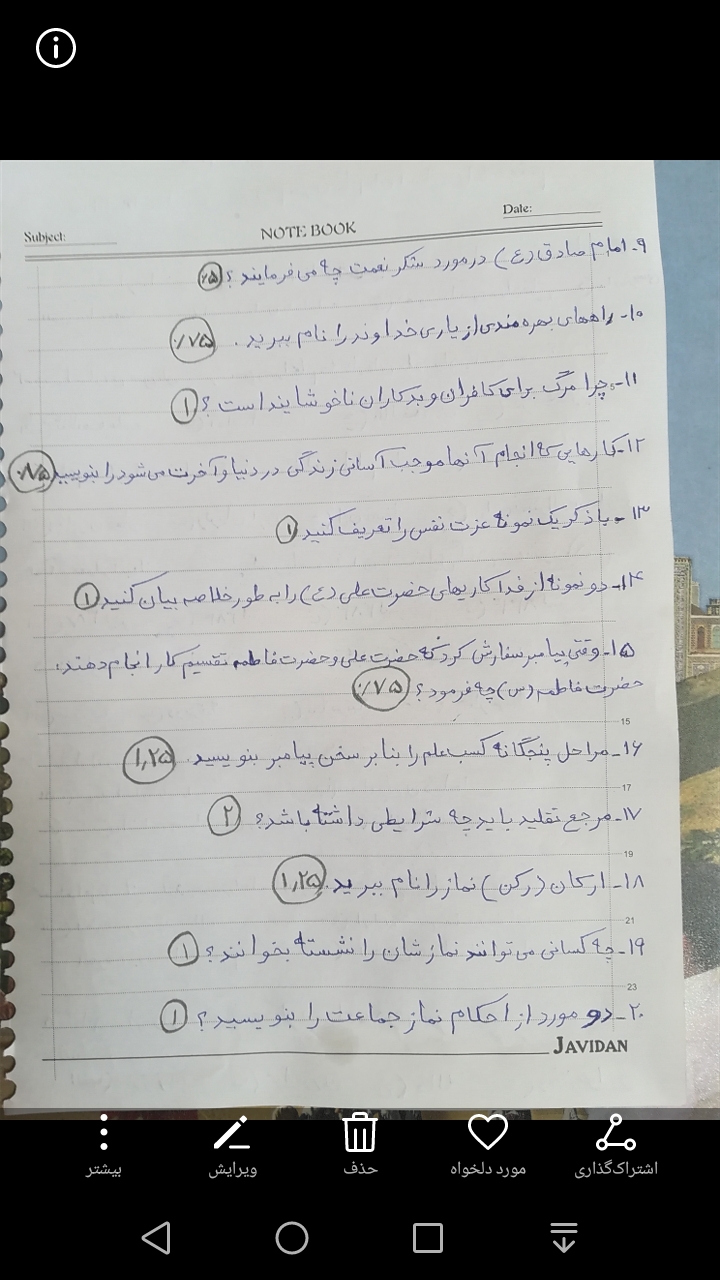 Subject:
NOTE BOOK
Date:
۹- امام صادق (ع) در مورد شکر نعمت چه می فرمایند ؟ ۰/۵
۱۰- راههای بهره مندی از یاری خداوند را نام ببرید . ۰/۷۵
۱۱- چرا مرگ برای کافران و بدکاران ناخوشایند است ؟ ۱
۱۲- کارهایی که انجام آنها موجب آسانی زندگی در دنیا و آخرت می شود را بنویسید ۰/۷۵
۱۳- با ذکر یک نمونه عزت نفس را تعریف کنید ۱
۱۴- دو نمونه از فداکاریهای حضرت علی (ع) را به طور خلاصه بیان کنید ۱
۱۵- وقتی پیامبر سفارش کرد که حضرت علی و حضرت فاطمه تقسیم کار انجام دهند،
حضرت فاطمه (س) چه فرمود ؟ ۰/۷۵
15
۱۶- مراحل پنجگانه کسب علم را بنا بر سخن پیامبر بنویسید ۱,۲۵
17
۱۷- مرجع تقلید باید چه شرایطی داشته باشد؟ ۲
19
۱۸- ارکان (رکن) نماز را نام ببرید. ۱,۲۵
21
۱۹- چه کسانی می توانند نمازشان را نشسته بخوانند؟ ۱
23
۲۰- دو مورد از احکام نماز جماعت را بنویسید ؟ ۱
JAVIDAN
بیشتر
ویرایش
حذف
مورد دلخواه
اشتراک‌گذاری